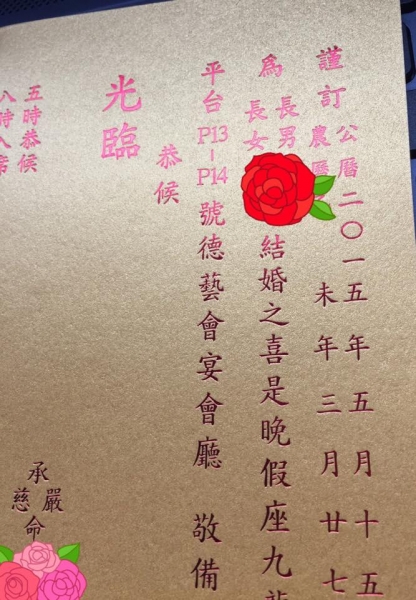 謹訂
公曆二〇一五年五月十五
農曆
未年三月廿七
為
長男
長女
結婚之喜是晚假座九龍
平台P13-P14號德藝會宴會廳 敬備
恭候
光臨
五時恭候
八時入席
承
嚴
慈
命